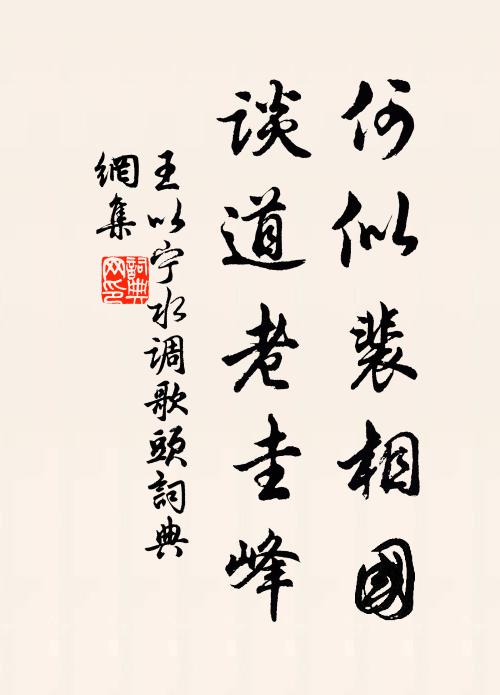 何似裴相國
谈道老圭峰
王以宁水调歌頭詞典
網集
詞典
网印